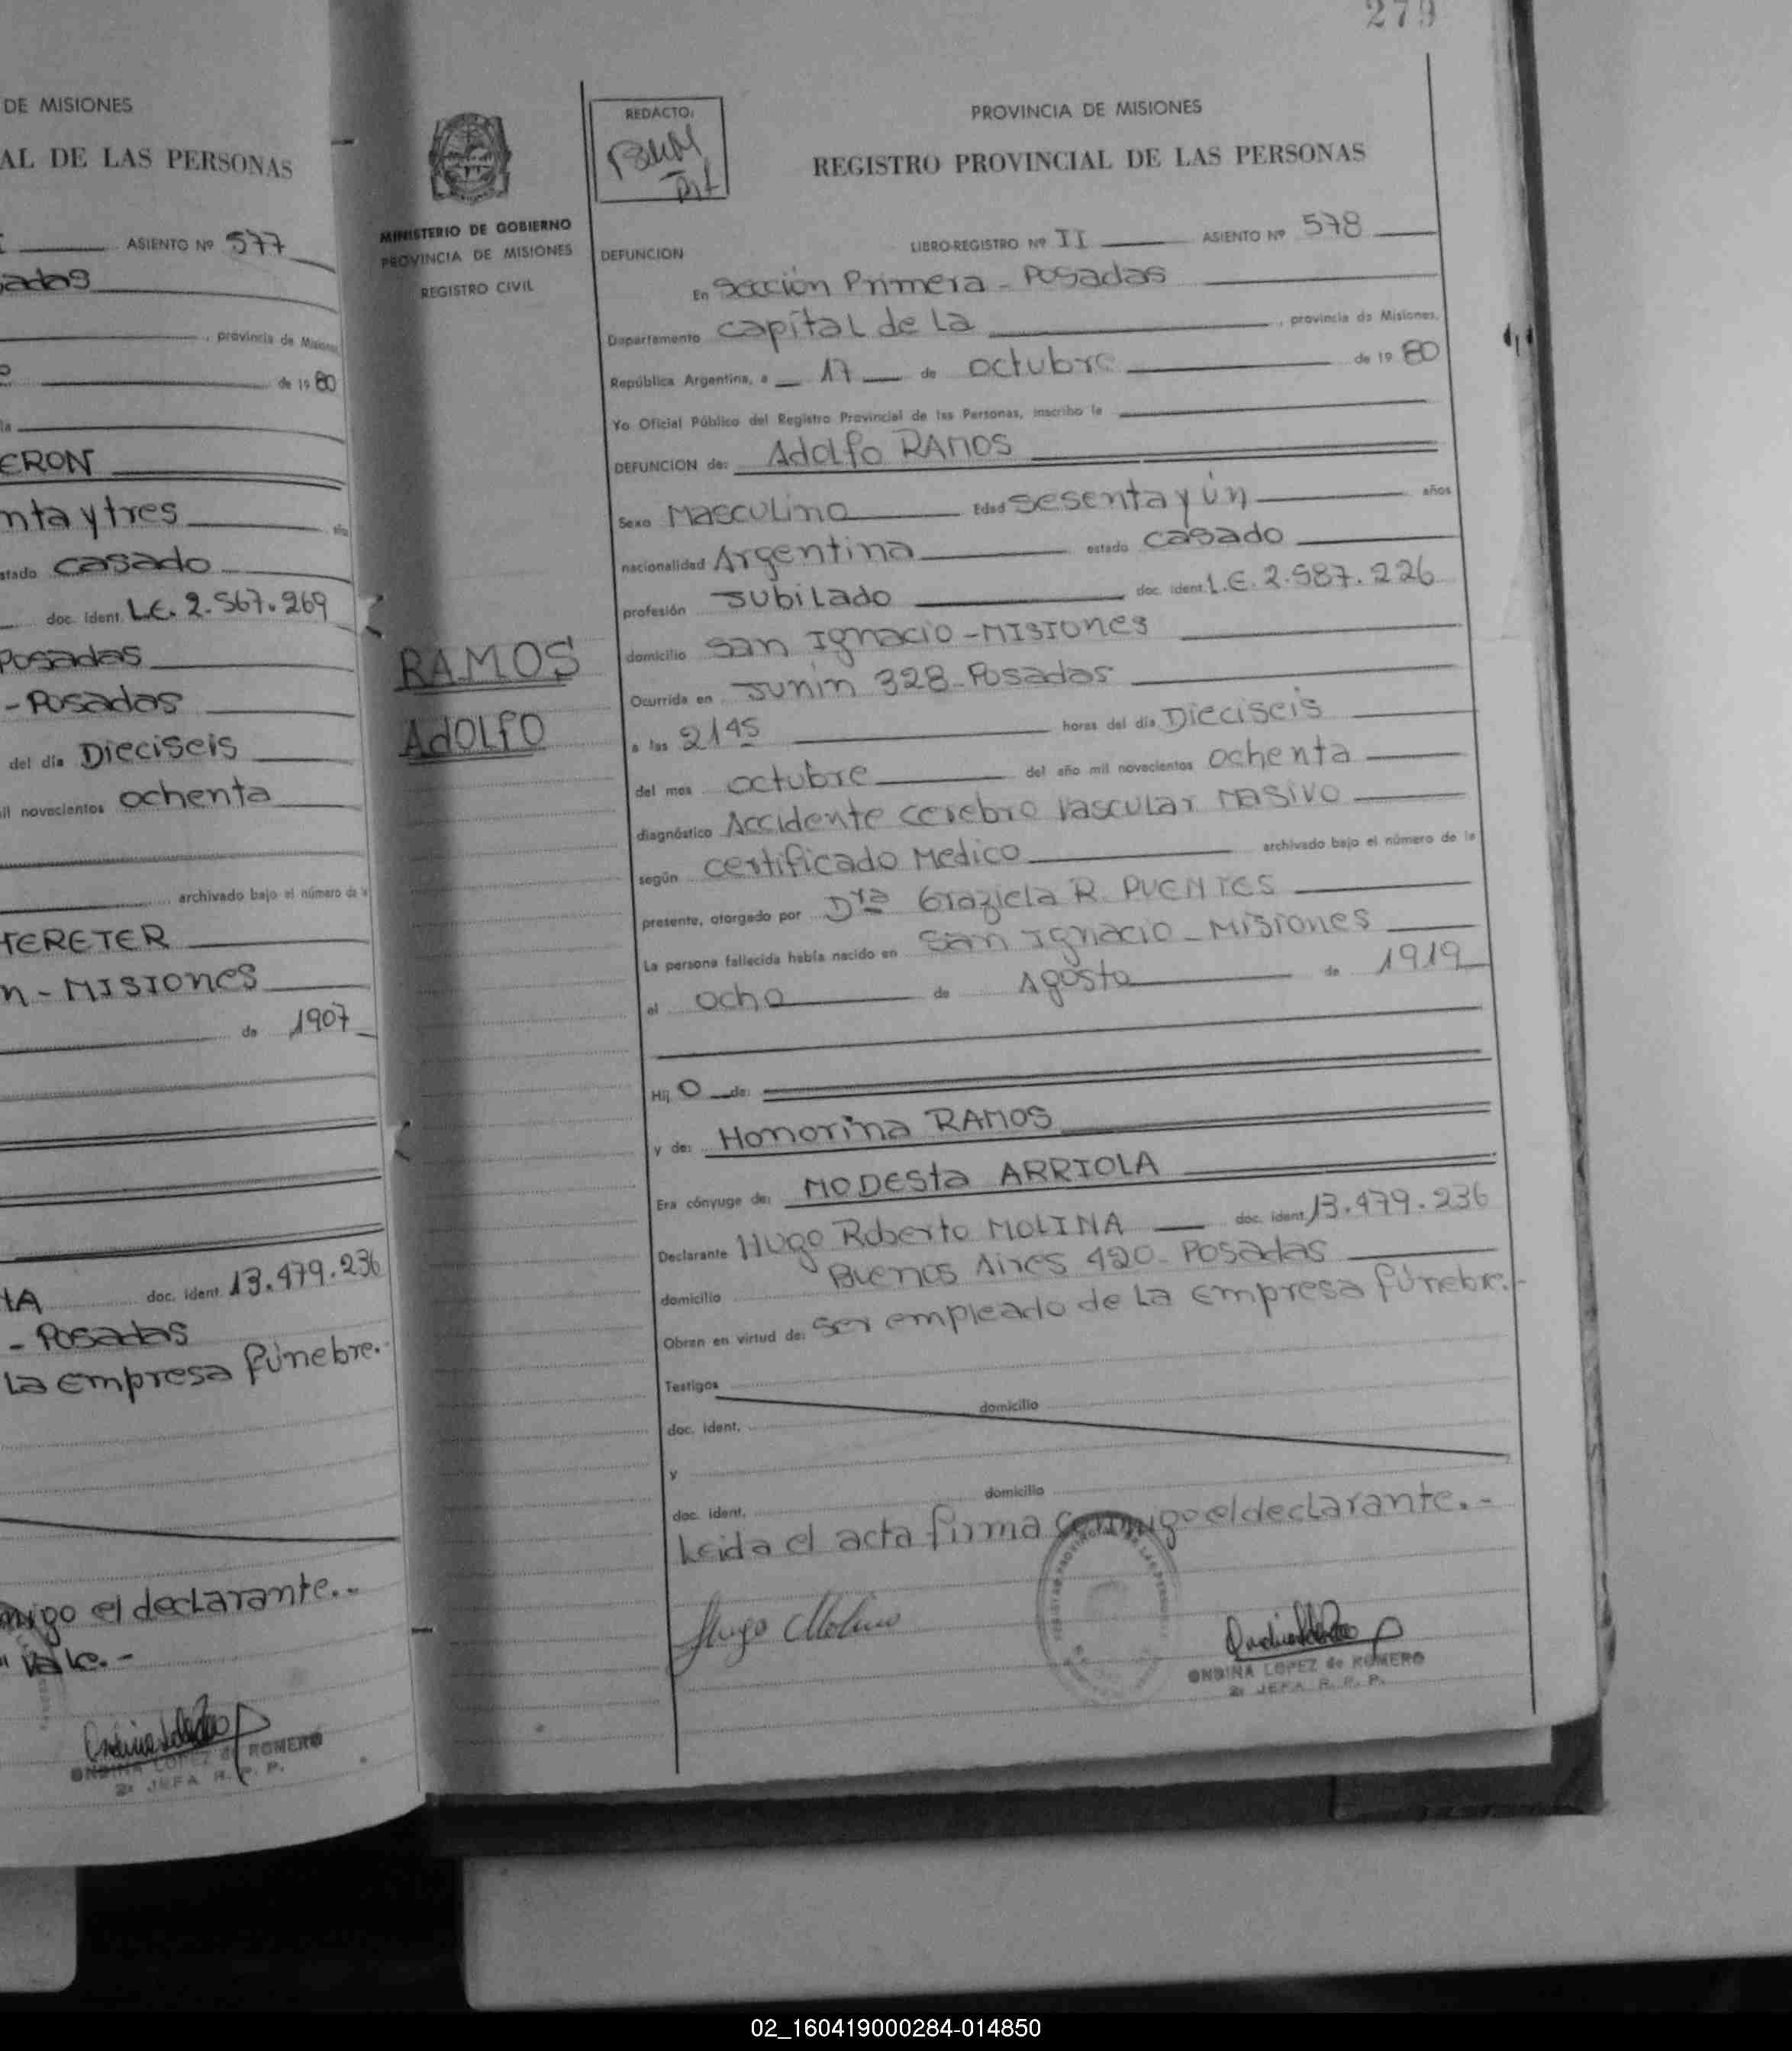 DE MISIONES
AL DE LAS PERSONAS
ASIENTO Nº 577
provincia de Misiones
de 19 80
la
ERON
nta y tres
stado casado
doc. ident. L.E. 2.567.269
Posadas
- Posadas
del día Dieciseis
il novecientos ochenta
archivado bajo el número de l
TERETER
n - MISIONES
de 1907
doc. ident. 13.479.236
- Posadas
La empresa fúnebre.
migo el declarante.-
Vale.-
ONDINA LOPEZ de ROMERO
2ª JEFA R. P. P.
279
MINISTERIO DE GOBIERNO
PROVINCIA DE MISIONES
REGISTRO CIVIL
RAMOS
AdOLfO
REDACTO:
PROVINCIA DE MISIONES
REGISTRO PROVINCIAL DE LAS PERSONAS
DEFUNCION LIBRO-REGISTRO Nº II ASIENTO Nº 578
En Sección Primera - Posadas
Departamento capital de La , provincia de Misiones,
República Argentina, a 17 de octubre de 19 80
Yo Oficial Público del Registro Provincial de las Personas, inscribo la
DEFUNCION de: Adolfo RAMOS
Sexo Masculino Edad sesenta y ún años
nacionalidad Argentina estado casado
profesión Jubilado doc. ident. L.E. 2.587.226
domicilio San Ignacio - MISIONES
Ocurrida en Junín 328 - Posadas
a las 21 45 horas del día Dieciseis
del mes octubre del año mil novecientos ochenta
diagnóstico Accidente cerebro vascular masivo
según certificado Medico archivado bajo el número de la
presente, otorgado por Dra Graziela R. PUENTES
La persona fallecida había nacido en San Ignacio - Misiones
el ocho de Agosto de 1919
Hij o de:
y de: Honorina RAMOS
Era cónyuge de: MODESta ARRIOLA
Declarante Hugo Roberto MOLINA doc. ident. 13.479.236
domicilio Buenos Aires 420 - Posadas
Obran en virtud de: ser empleado de La empresa fúnebre.-
Testigos domicilio
doc. ident.
y domicilio
doc. ident.
Leida el acta firma conmigo el declarante.-
Hugo Molina
ONDINA LOPEZ de ROMERO
2ª JEFA R. P. P.
02_160419000284-014850